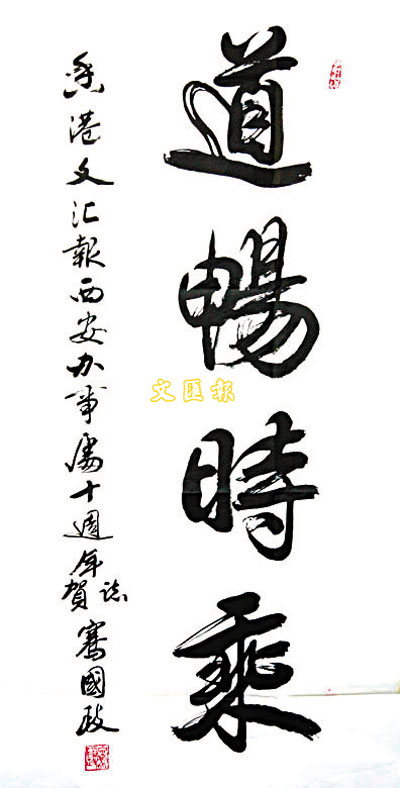 道暢時乘
香港文汇報西安办事處十週年誌賀 騫國政
文匯報